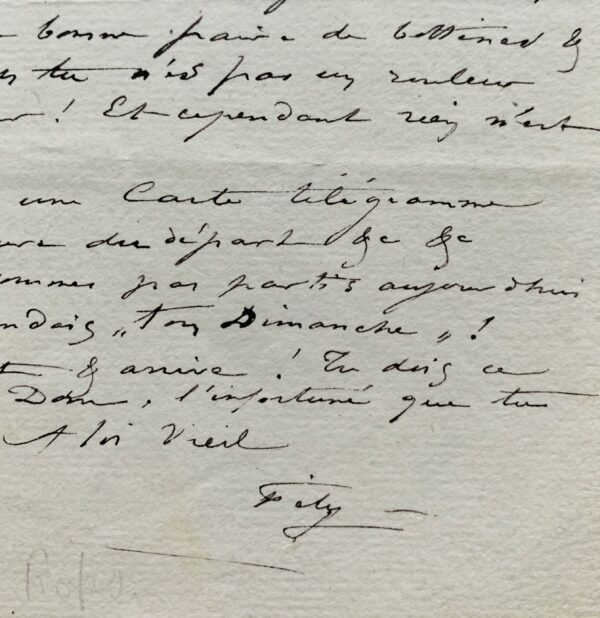 bonne paire de bottines &
tu n'es pas un rouleur
! Et cependant rien n'est
une Carte télégramme
du départ &c &c
pas partis aujourd'hui
„ ton Dimanche „ !
& arrive ! Tu dois ce
Dom, l'infortuné que tu
A toi Vieil
Fély
Rops.